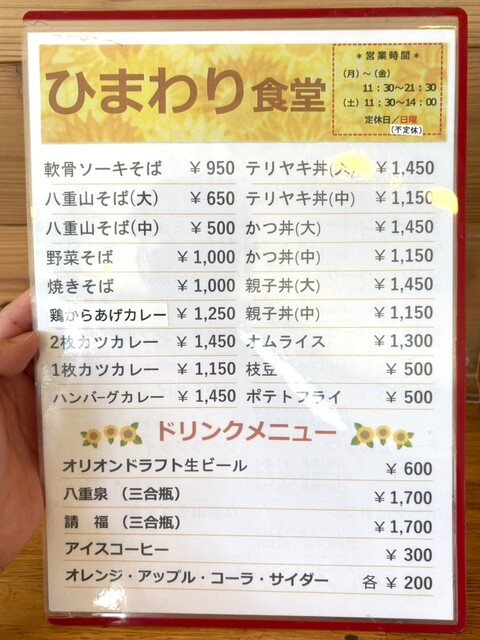 ひまわり食堂
＊営業時間＊
(月)〜(金)
11：30〜21：30
(土) 11：30〜14：00
定休日／日曜
(不定休)
軟骨ソーキそば ￥950
八重山そば(大) ￥650
八重山そば(中) ￥500
野菜そば ￥1,000
焼きそば ￥1,000
鶏からあげカレー ￥1,250
2枚カツカレー ￥1,450
1枚カツカレー ￥1,150
ハンバーグカレー ￥1,450
テリヤキ丼(大) ￥1,450
テリヤキ丼(中) ￥1,150
かつ丼(大) ￥1,450
かつ丼(中) ￥1,150
親子丼(大) ￥1,450
親子丼(中) ￥1,150
オムライス ￥1,300
枝豆 ￥500
ポテトフライ ￥500
ドリンクメニュー
オリオンドラフト生ビール ￥600
八重泉 （三合瓶） ￥1,700
請 福 （三合瓶） ￥1,700
アイスコーヒー ￥300
オレンジ・アップル・コーラ・サイダー 各 ￥200